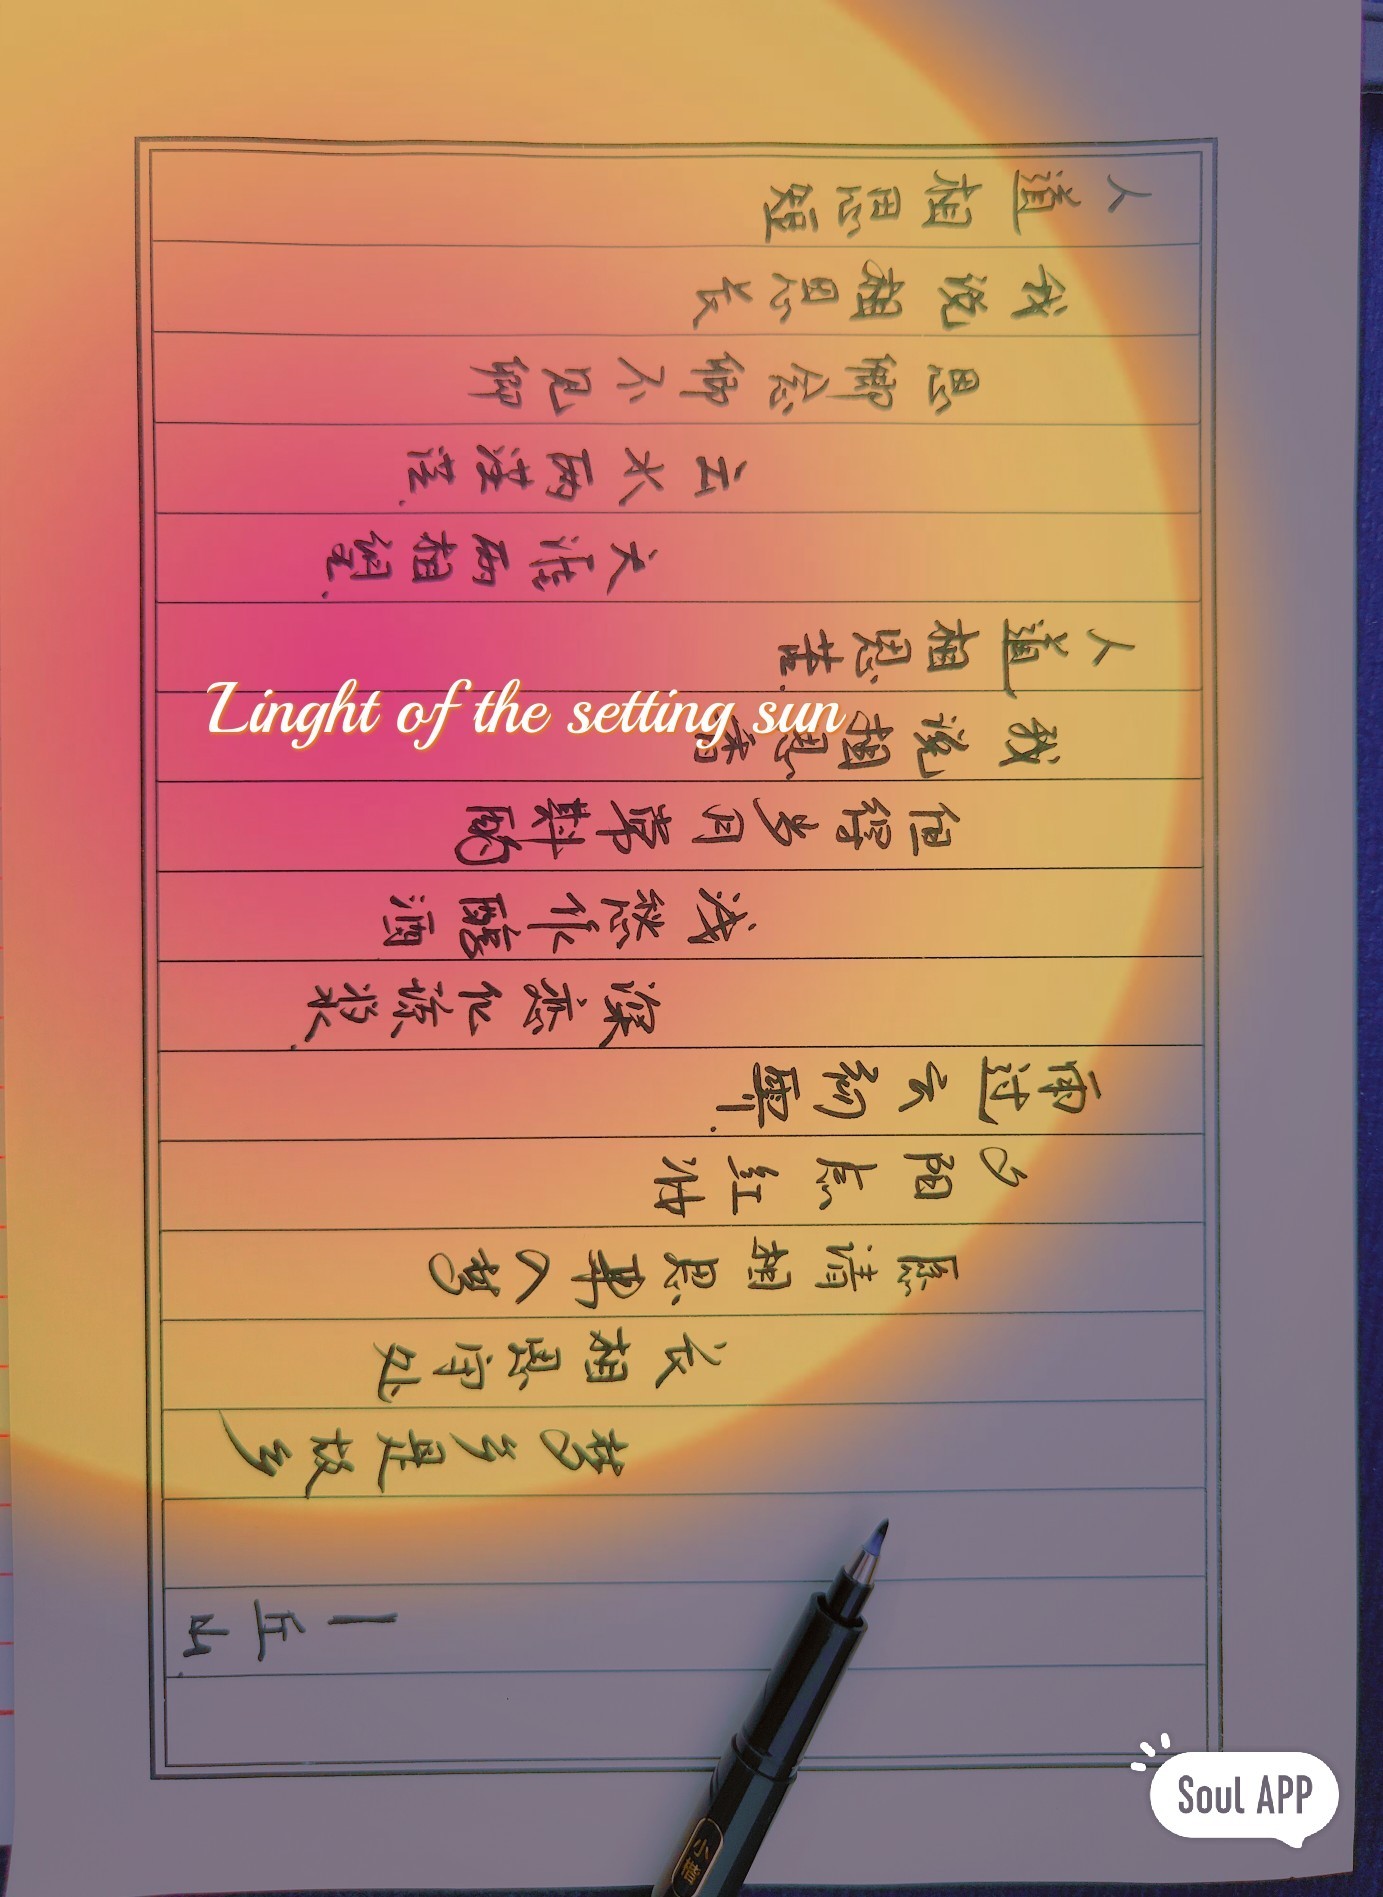 人道相思短
我说相思长
思卿念卿不见卿
云水两茫茫.
天涯两相望.
人道相思苦.
我说相思香
但得岁月常斟酌
浅愁作酒
深恋化琼浆.
雨过云初霁.
夕阳点红妆
愿请相思再入梦
长相思守处
梦乡是故乡
一丘山.
Linght of the setting sun
小楷
Soul APP